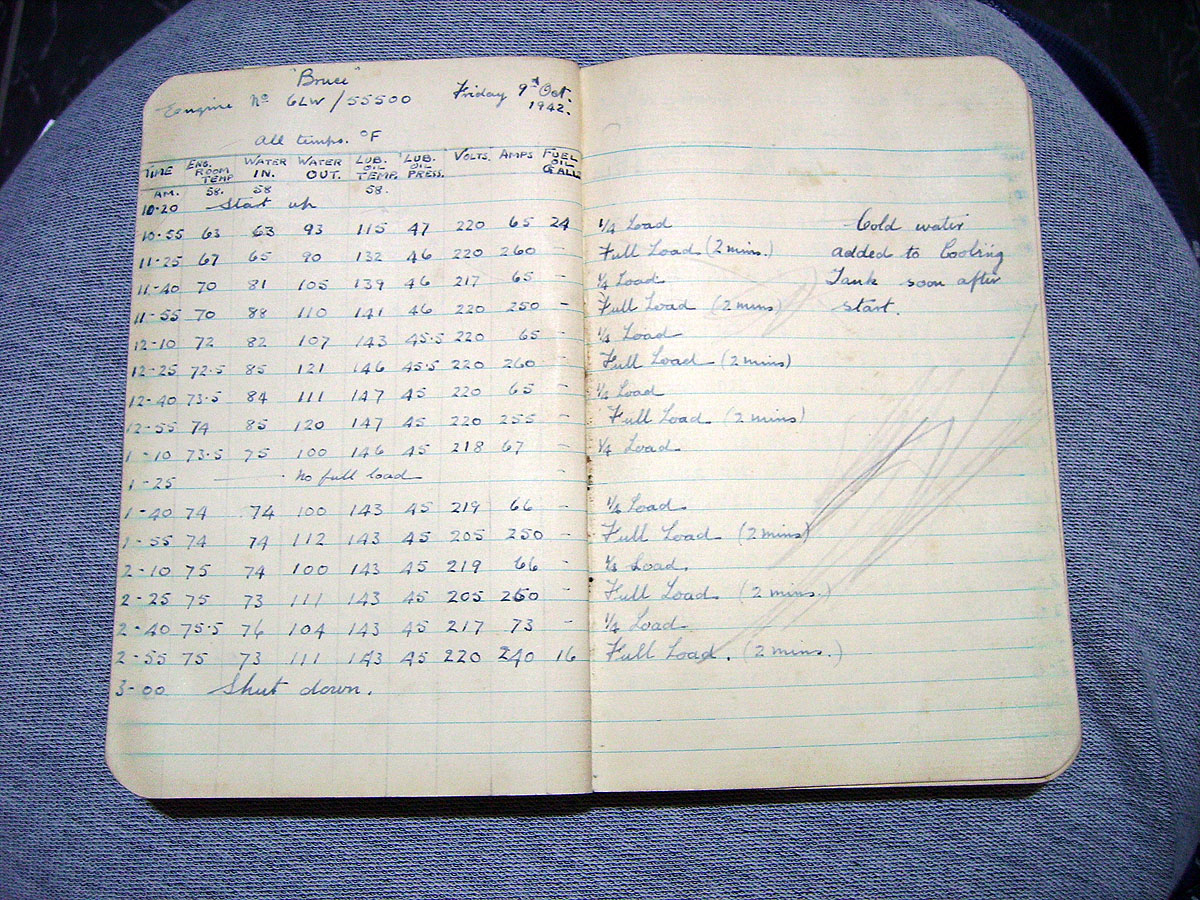 "Bruce"
Engine No 6LW/55500 Friday 9th Oct. 1942.
All temps. °F
TIME ENG. ROOM TEMP WATER IN. WATER OUT. LUB. OIL TEMP. LUB. OIL PRESS. VOLTS. AMPS FUEL OIL GALLS
AM. 58. 58 58.
10-20 Start up
10-55 63 63 93 115 47 220 65 24 1/4 Load Cold water
11-25 67 65 90 132 46 220 260 - Full Load (2 mins.) added to Cooling
11-40 70 81 105 139 46 217 65 - 1/4 Load Tank soon after
11-55 70 88 110 141 46 220 250 - Full Load (2 mins) start.
12-10 72 82 107 143 45.5 220 65 - 1/4 Load
12-25 72.5 85 121 146 45.5 220 260 - Full Load (2 mins)
12-40 73.5 84 111 147 45 220 65 - 1/4 Load
12-55 74 85 120 147 45 220 255 - Full Load (2 mins)
1-10 73.5 75 100 146 45 218 67 - 1/4 Load
1-25 No full load -
1-40 74 74 100 143 45 219 66 - 1/4 Load.
1-55 74 74 112 143 45 205 250 - Full Load (2 mins)
2-10 75 74 100 143 45 219 66 - 1/4 Load.
2-25 75 73 111 143 45 205 260 - Full Load. (2 mins.)
2-40 75.5 76 104 143 45 217 73 - 1/4 Load.
2-55 75 73 111 143 45 220 240 16 Full Load. (2 mins.)
3-00 Shut down.